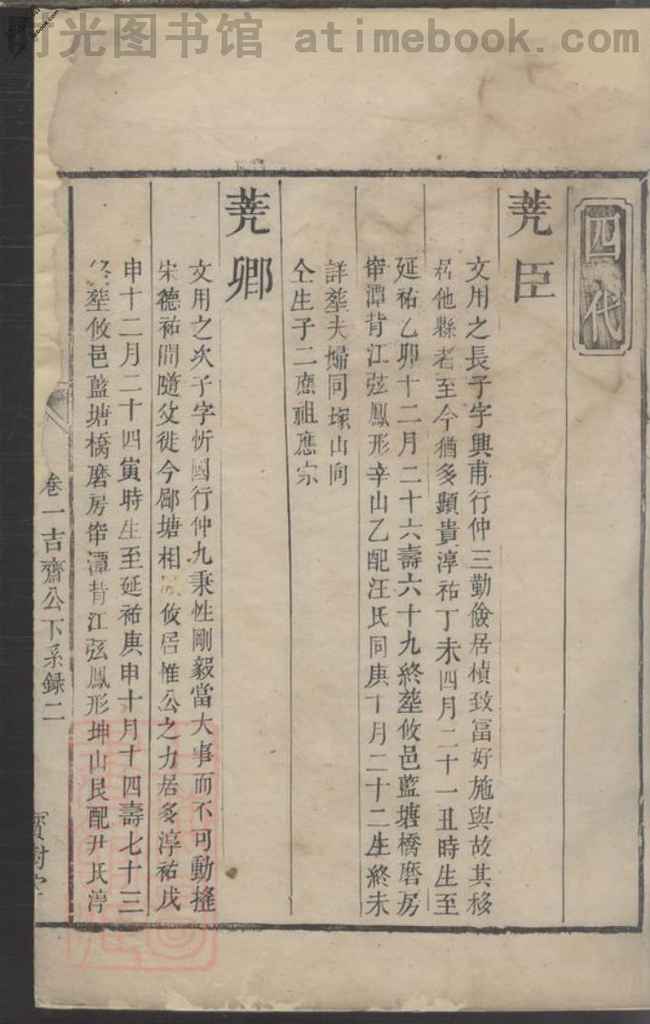 光图书馆 atimebook.com
四代
蕘臣
文用之長子字興甫行仲三勤儉居積致富好施與故其移
居他縣者至今猶多顯貴淳祐丁未四月二十一丑時生至
延祐乙卯十二月二十六壽六十九終塟攸邑藍塘橋磨房
窂潭背江弦鳳形辛山乙配汪氏同庚十月二十二生終未
詳塟夫婦同塚山向
仝生子二應祖應宗
蕘卿
文用之次子字忻國行仲九秉性剛毅當大事而不可動搖
宋德祐間隨父徙今鄢塘相攸居惟公之力居多淳祐戊
申十二月二十四寅時生至延祐庚申十月十四壽七十三
終塟攸邑藍塘橋磨房窂潭背江弦鳳形坤山艮配尹氏淳
卷一吉齋公下系錄二
寳樹堂